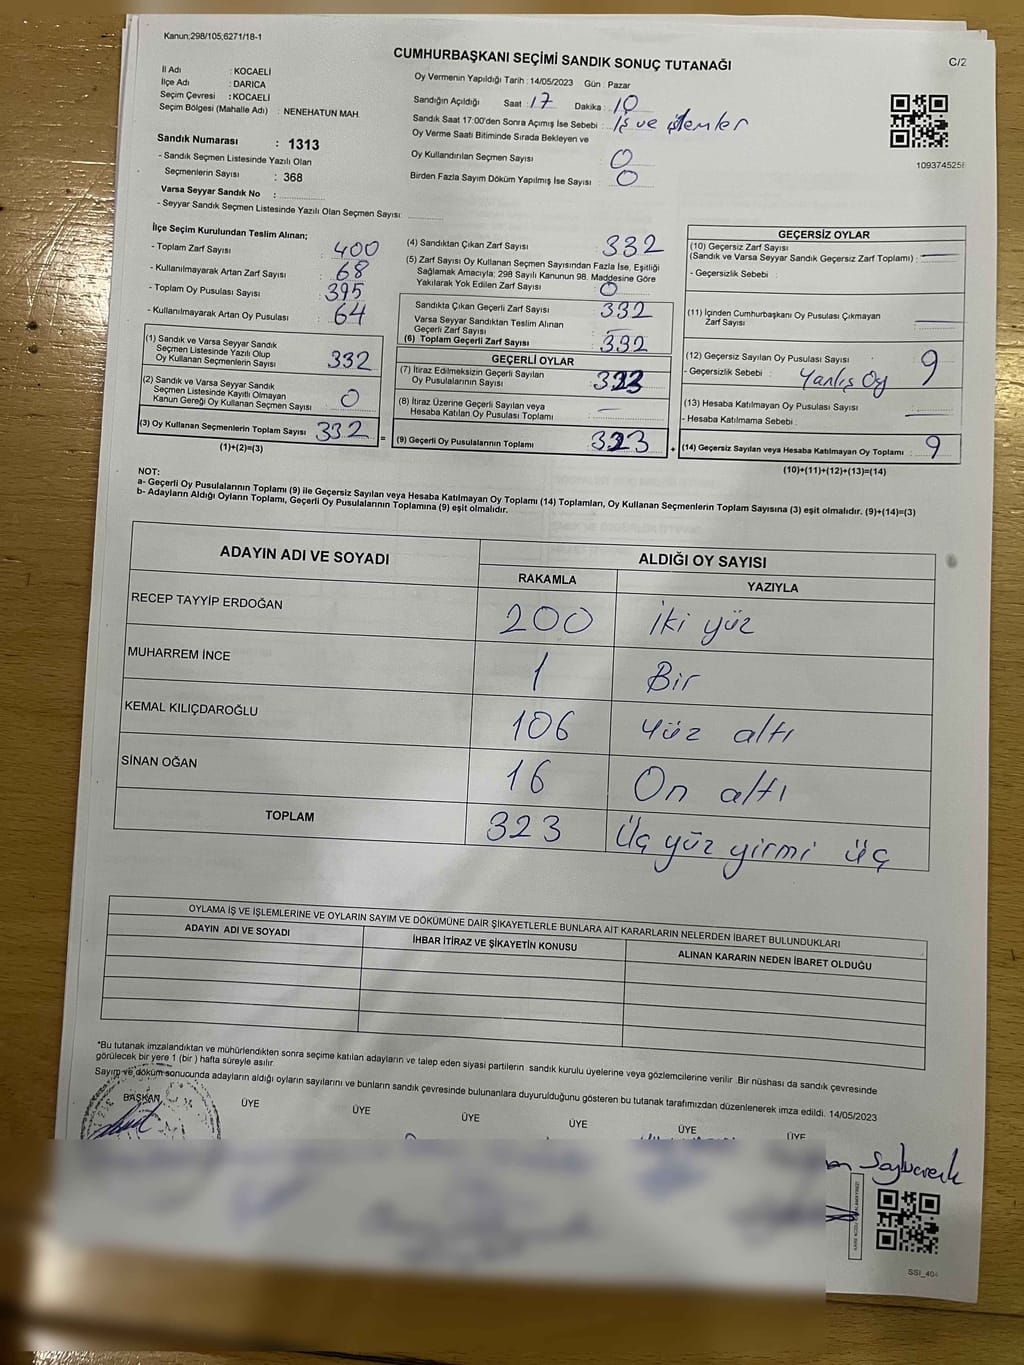 Kanun;298/105,6271/18-1
CUMHURBAŞKANI SEÇİMİ SANDIK SONUÇ TUTANAĞI
C/2
İl Adı : KOCAELİ
İlçe Adı : DARICA
Seçim Çevresi : KOCAELİ
Seçim Bölgesi (Mahalle Adı) : NENEHATUN MAH.
Sandık Numarası : 1313
- Sandık Seçmen Listesinde Yazılı Olan
Seçmenlerin Sayısı : 368
Varsa Seyyar Sandık No :
- Seyyar Sandık Seçmen Listesinde Yazılı Olan Seçmen Sayısı:
Oy Vermenin Yapıldığı Tarih : 14/05/2023 Gün : Pazar
Sandığın Açıldığı Saat : 17 Dakika : 10
Sandık Saat 17:00'den Sonra Açımış İse Sebebi : İş ve işlemler
Oy Verme Saati Bitiminde Sırada Bekleyen ve
Oy Kullandırılan Seçmen Sayısı : 0
Birden Fazla Sayım Döküm Yapılmış İse Sayısı : 0
1093745258
İlçe Seçim Kurulundan Teslim Alınan;
- Toplam Zarf Sayısı : 400
- Kullanılmayarak Artan Zarf Sayısı : 68
- Toplam Oy Pusulası Sayısı : 395
- Kullanılmayarak Artan Oy Pusulası : 64
(1) Sandık ve Varsa Seyyar Sandık
Seçmen Listesinde Yazılı Olup
Oy Kullanan Seçmenlerin Sayısı : 332
(2) Sandık ve Varsa Seyyar Sandık
Seçmen Listesinde Kayıtlı Olmayan
Kanun Gereği Oy Kullanan Seçmen Sayısı : 0
(3) Oy Kullanan Seçmenlerin Toplam Sayısı : 332
(1)+(2)=(3)
(4) Sandıktan Çıkan Zarf Sayısı : 332
(5) Zarf Sayısı Oy Kullanan Seçmen Sayısından Fazla İse, Eşitliği
Sağlamak Amacıyla; 298 Sayılı Kanunun 98. Maddesine Göre
Yakılarak Yok Edilen Zarf Sayısı : 0
Sandıkta Çıkan Geçerli Zarf Sayısı : 332
Varsa Seyyar Sandıktan Teslim Alınan
Geçerli Zarf Sayısı :
(6) Toplam Geçerli Zarf Sayısı : 332
GEÇERLİ OYLAR
(7) İtiraz Edilmeksizin Geçerli Sayılan
Oy Pusulalarının Sayısı : 323
(8) İtiraz Üzerine Geçerli Sayılan veya
Hesaba Katılan Oy Pusulası Toplamı : —
= (9) Geçerli Oy Pusulalarının Toplamı : 323
GEÇERSİZ OYLAR
(10) Geçersiz Zarf Sayısı
(Sandık ve Varsa Seyyar Sandık Geçersiz Zarf Toplamı) : —
- Geçersizlik Sebebi :
(11) İçinden Cumhurbaşkanı Oy Pusulası Çıkmayan
Zarf Sayısı : —
(12) Geçersiz Sayılan Oy Pusulası Sayısı : 9
- Geçersizlik Sebebi : Yanlış Oy
(13) Hesaba Katılmayan Oy Pusulası Sayısı : —
- Hesaba Katılmama Sebebi :
+ (14) Geçersiz Sayılan veya Hesaba Katılmayan Oy Toplamı : 9
(10)+(11)+(12)+(13)=(14)
NOT:
a- Geçerli Oy Pusulalarının Toplamı (9) ile Geçersiz Sayılan veya Hesaba Katılmayan Oy Toplamı (14) Toplamları, Oy Kullanan Seçmenlerin Toplam Sayısına (3) eşit olmalıdır. (9)+(14)=(3)
b- Adayların Aldığı Oyların Toplamı, Geçerli Oy Pusulalarının Toplamına (9) eşit olmalıdır.
ADAYIN ADI VE SOYADI ALDIĞI OY SAYISI
RAKAMLA YAZIYLA
RECEP TAYYİP ERDOĞAN 200 İki yüz
MUHARREM İNCE 1 Bir
KEMAL KILIÇDAROĞLU 106 Yüz altı
SİNAN OĞAN 16 On altı
TOPLAM 323 Üç yüz yirmi üç
OYLAMA İŞ VE İŞLEMLERİNE VE OYLARIN SAYIM VE DÖKÜMÜNE DAİR ŞİKAYETLERLE BUNLARA AİT KARARLARIN NELERDEN İBARET BULUNDUKLARI
ADAYIN ADI VE SOYADI İHBAR İTİRAZ VE ŞİKAYETİN KONUSU ALINAN KARARIN NEDEN İBARET OLDUĞU
*Bu tutanak imzalandıktan ve mühürlendikten sonra seçime katılan adayların ve talep eden siyasi partilerin sandık kurulu üyelerine veya gözlemcilerine verilir .Bir nüshası da sandık çevresinde
görülecek bir yere 1 (bir ) hafta süreyle asılır.
Sayım ve döküm sonucunda adayların aldığı oyların sayılarını ve bunların sandık çevresinde bulunanlara duyurulduğunu gösteren bu tutanak tarafımızdan düzenlenerek imza edildi. 14/05/2023
BAŞKAN ÜYE ÜYE ÜYE ÜYE ÜYE ÜYE
SSI_404